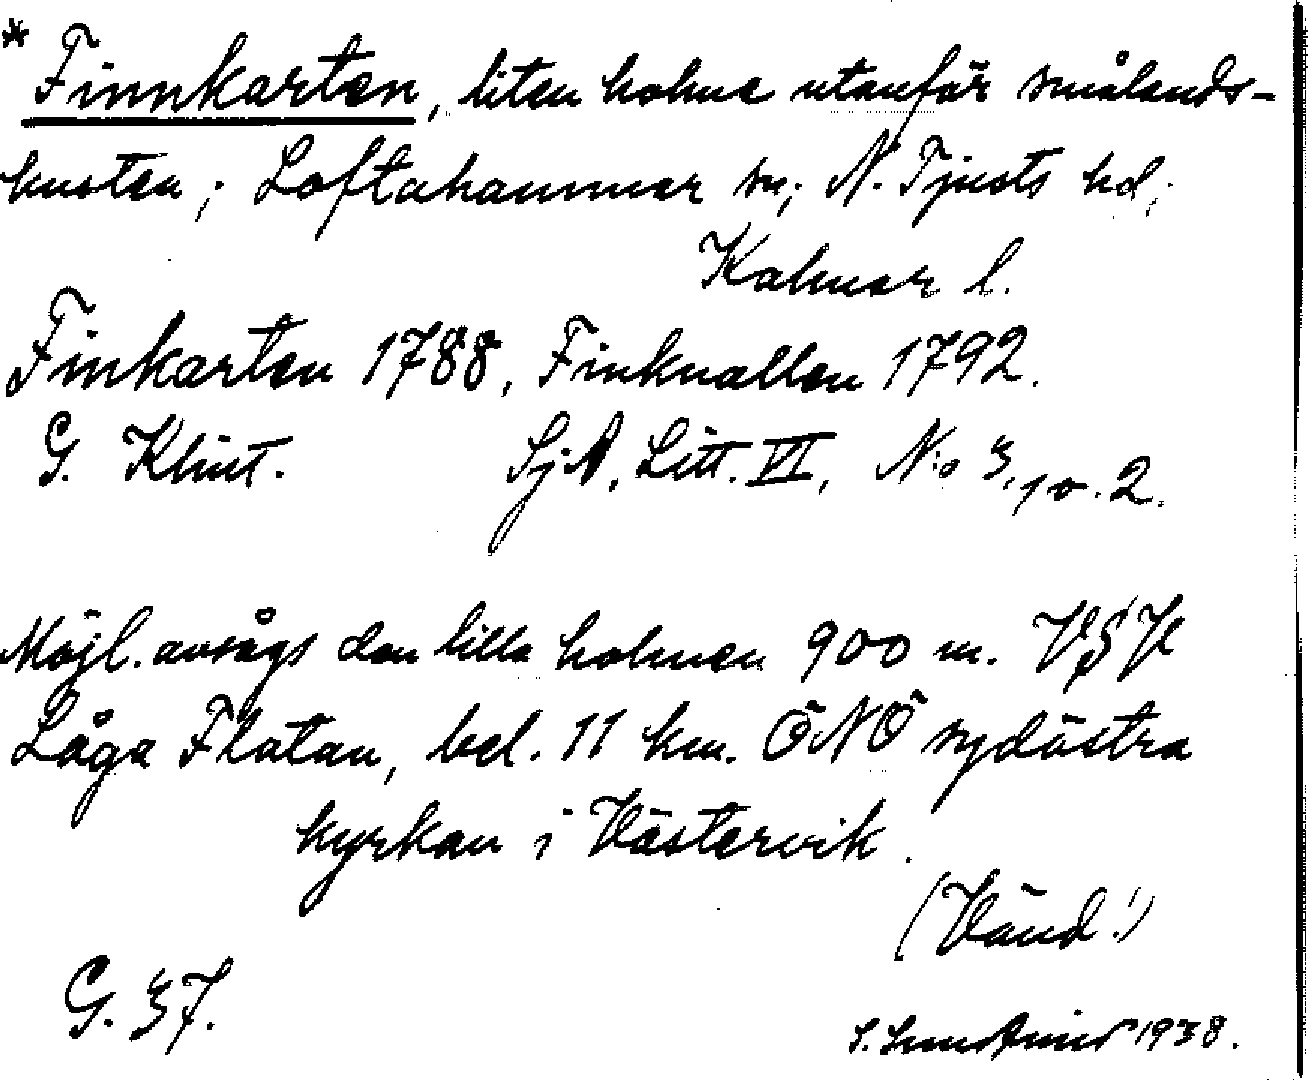 * Finnkarten, liten holme utanför smålands-
kusten; Loftahammar sn; N. Tjusts hd;
Kalmar l.
Finkarten 1788, Finknallen 1792.
G. Klint. SjA, Litt. VI, N:o 3, 10.2.
Möjl. avsågs den lilla holmen 900 m. VSV
Låga Flatan, bel. 11 km. ÖNÖ sydöstra
kyrkan i Västervik.
(Vänd!)
G. 37.
S. 1938.